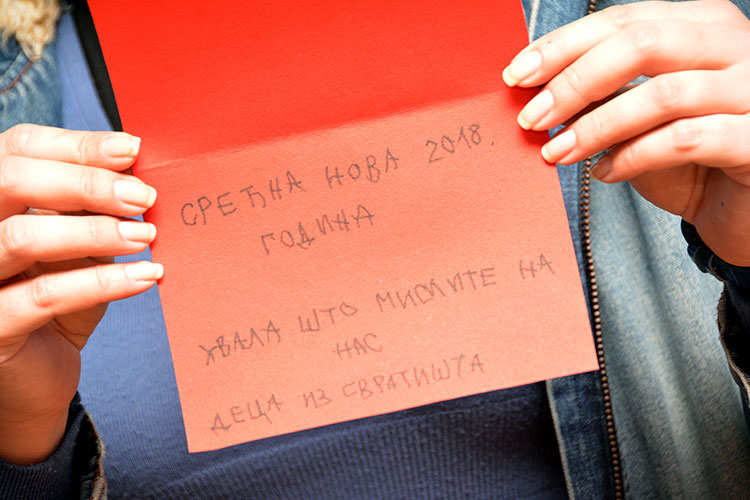 СРЕЋНА НОВА 2018.
ГОДИНА
ХВАЛА ШТО МИСЛИТЕ НА
НАС
ДЕЦА ИЗ СВРАТИШТА